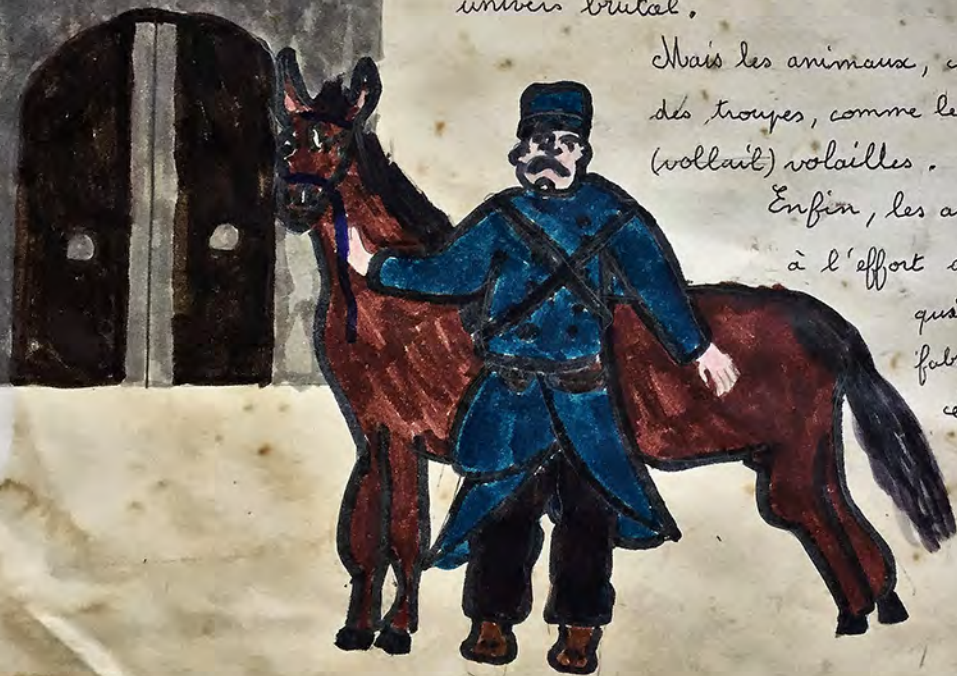 univers brutal.
Mais les animaux,
des troupes, comme le
(vollail) volailles.
Enfin, les
à l'effort